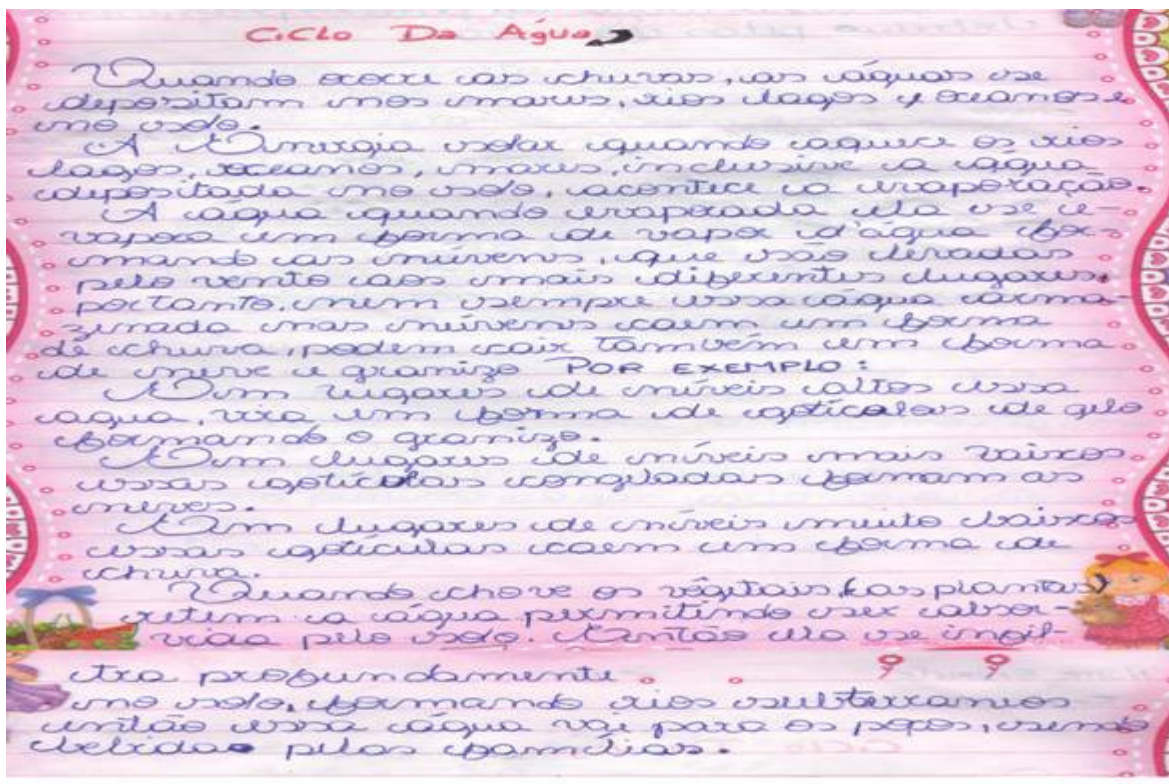 Ciclo Da Água
Quando ocorre as chuvas, as águas se
depositam nos mares, rios lagos e oceanos e
no solo.
A Energia solar quando aquece os rios
lagos, oceanos, mares, inclusive a água
depositada no solo, acontece a evaporação.
A água quando evaporada ela se e-
vapora em forma de vapor d'água for-
mando as núvens, que são levadas
pelo vento aos mais diferentes lugares,
portanto, nem sempre essa água arma-
zenada nas núvens caem em forma
de chuva, podem cair também em forma
de neve e granizo POR EXEMPLO:
Em lugares de níveis altos essa
agua, vira em forma de goticolas de gelo
formando o granizo.
Em lugares de níveis mais baixos
essas goticolas congeladas formam as
neves.
Em lugares de níveis muito baixos
essas goticulas caem em forma de
chuva.
Quando chove os végitais, (as plantas)
retem a água permitindo ser absor-
vida pelo solo. Então ela se infil-
tra profundamente
no solo, formando rios subterranios
então essa água vai para os poços, sendo
bebidas pelas famílias.